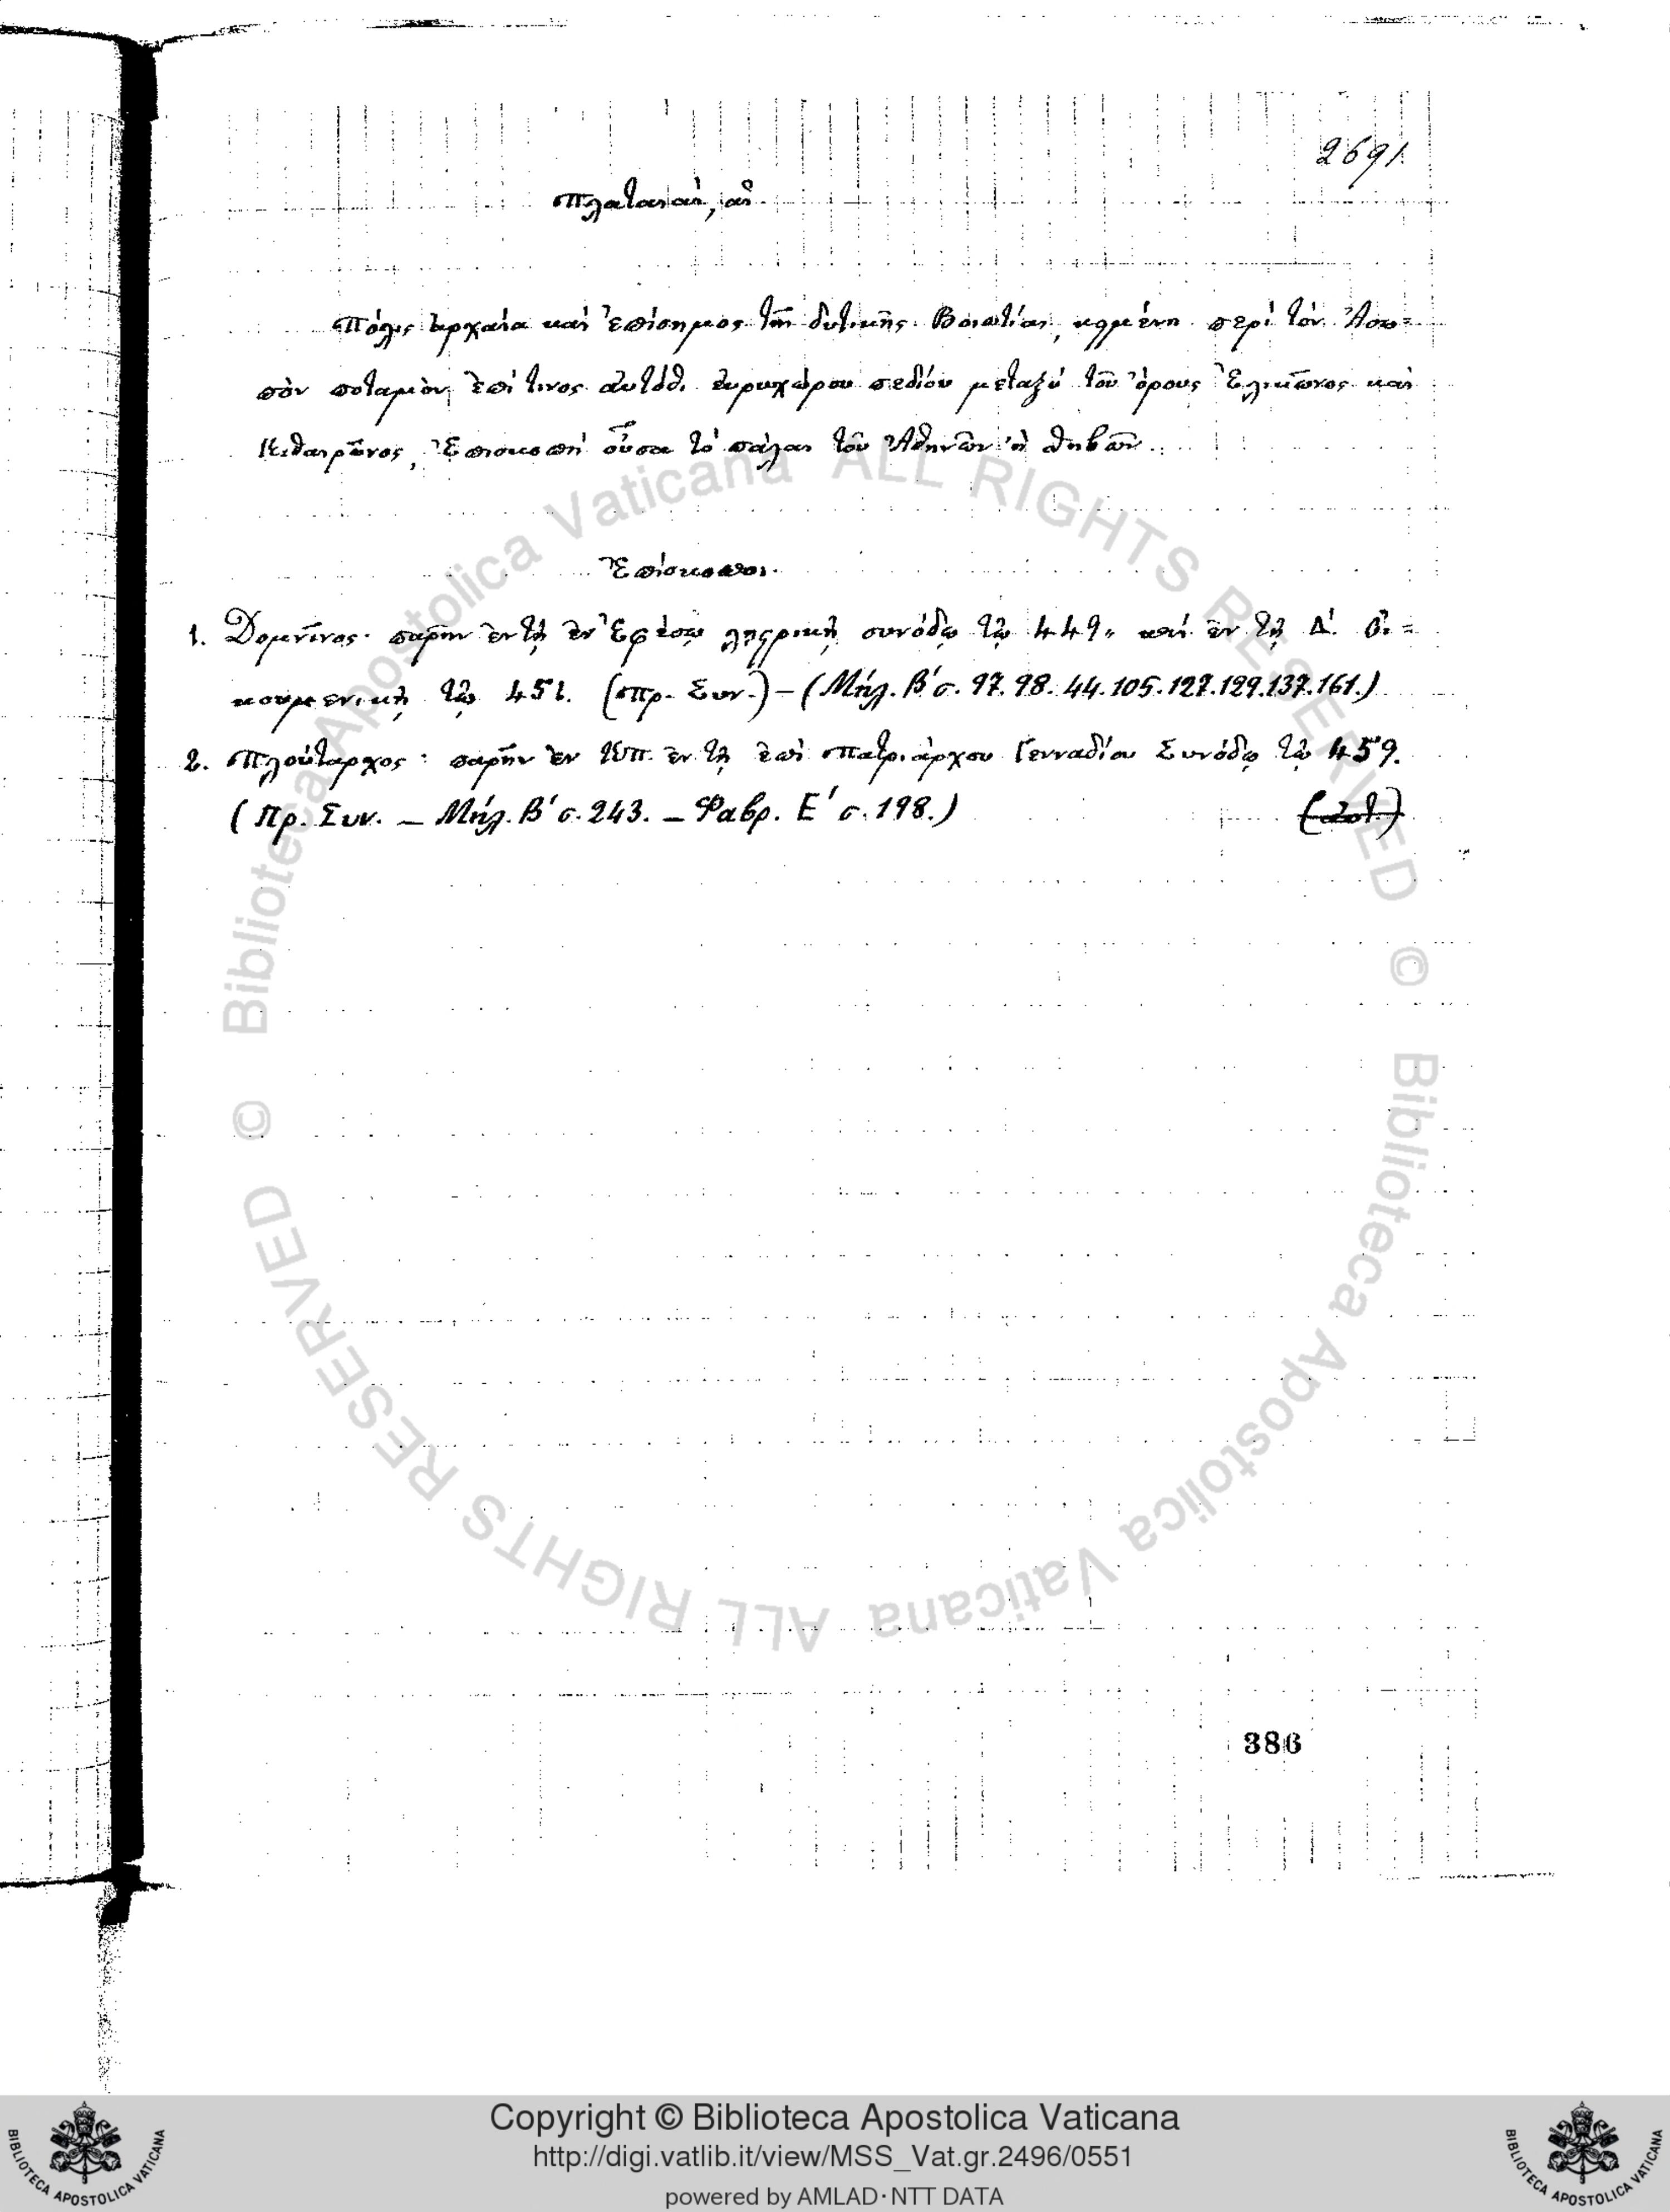 2691
Πλαταιαί, αἱ
Πόλις ἀρχαία καὶ ἐπίσημος τῆς δυτικῆς Βοιωτίας, κειμένη περὶ τὸν Ἀσω=
πὸν ποταμὸν, ἐπί τινος αὐτόθι εὐρυχώρου πεδίου μεταξὺ τοῦ ὄρους Ἑλικῶνος καὶ
Κιθαιρῶνος, Ἐπισκοπὴ οὖσα τὸ πάλαι τοῦ Ἀθηνῶν ἢ Θηβῶν.
Ἐπίσκοποι.
1. Δομνῖνος· παρῆν ἐν τῇ ἐν Ἐφέσῳ λῃστρικῇ συνόδῳ τῷ 449, καὶ ἐν τῇ Δ΄. Οἰ=
κουμενικῇ τῷ 451. (Πρ. Συν.) – (Μήλ. Β΄ σ. 97. 98. 44. 105. 127. 129. 137. 161.)
2. Πλούταρχος: παρῆν ἐν ΚΠ. ἐν τῇ ἐπὶ Πατριάρχου Γενναδίου Συνόδῳ τῷ 459.
(Πρ. Συν. – Μήλ. Β΄ σ. 243. – Φαβρ. Ε΄ σ. 198.)
386
© Biblioteca Apostolica Vaticana ALL RIGHTS RESERVED
© Biblioteca Apostolica Vaticana ALL RIGHTS RESERVED
BIBLIOTECA APOSTOLICA VATICANA
Copyright © Biblioteca Apostolica Vaticana
http://digi.vatlib.it/view/MSS_Vat.gr.2496/0551
powered by AMLAD·NTT DATA
BIBLIOTECA APOSTOLICA VATICANA